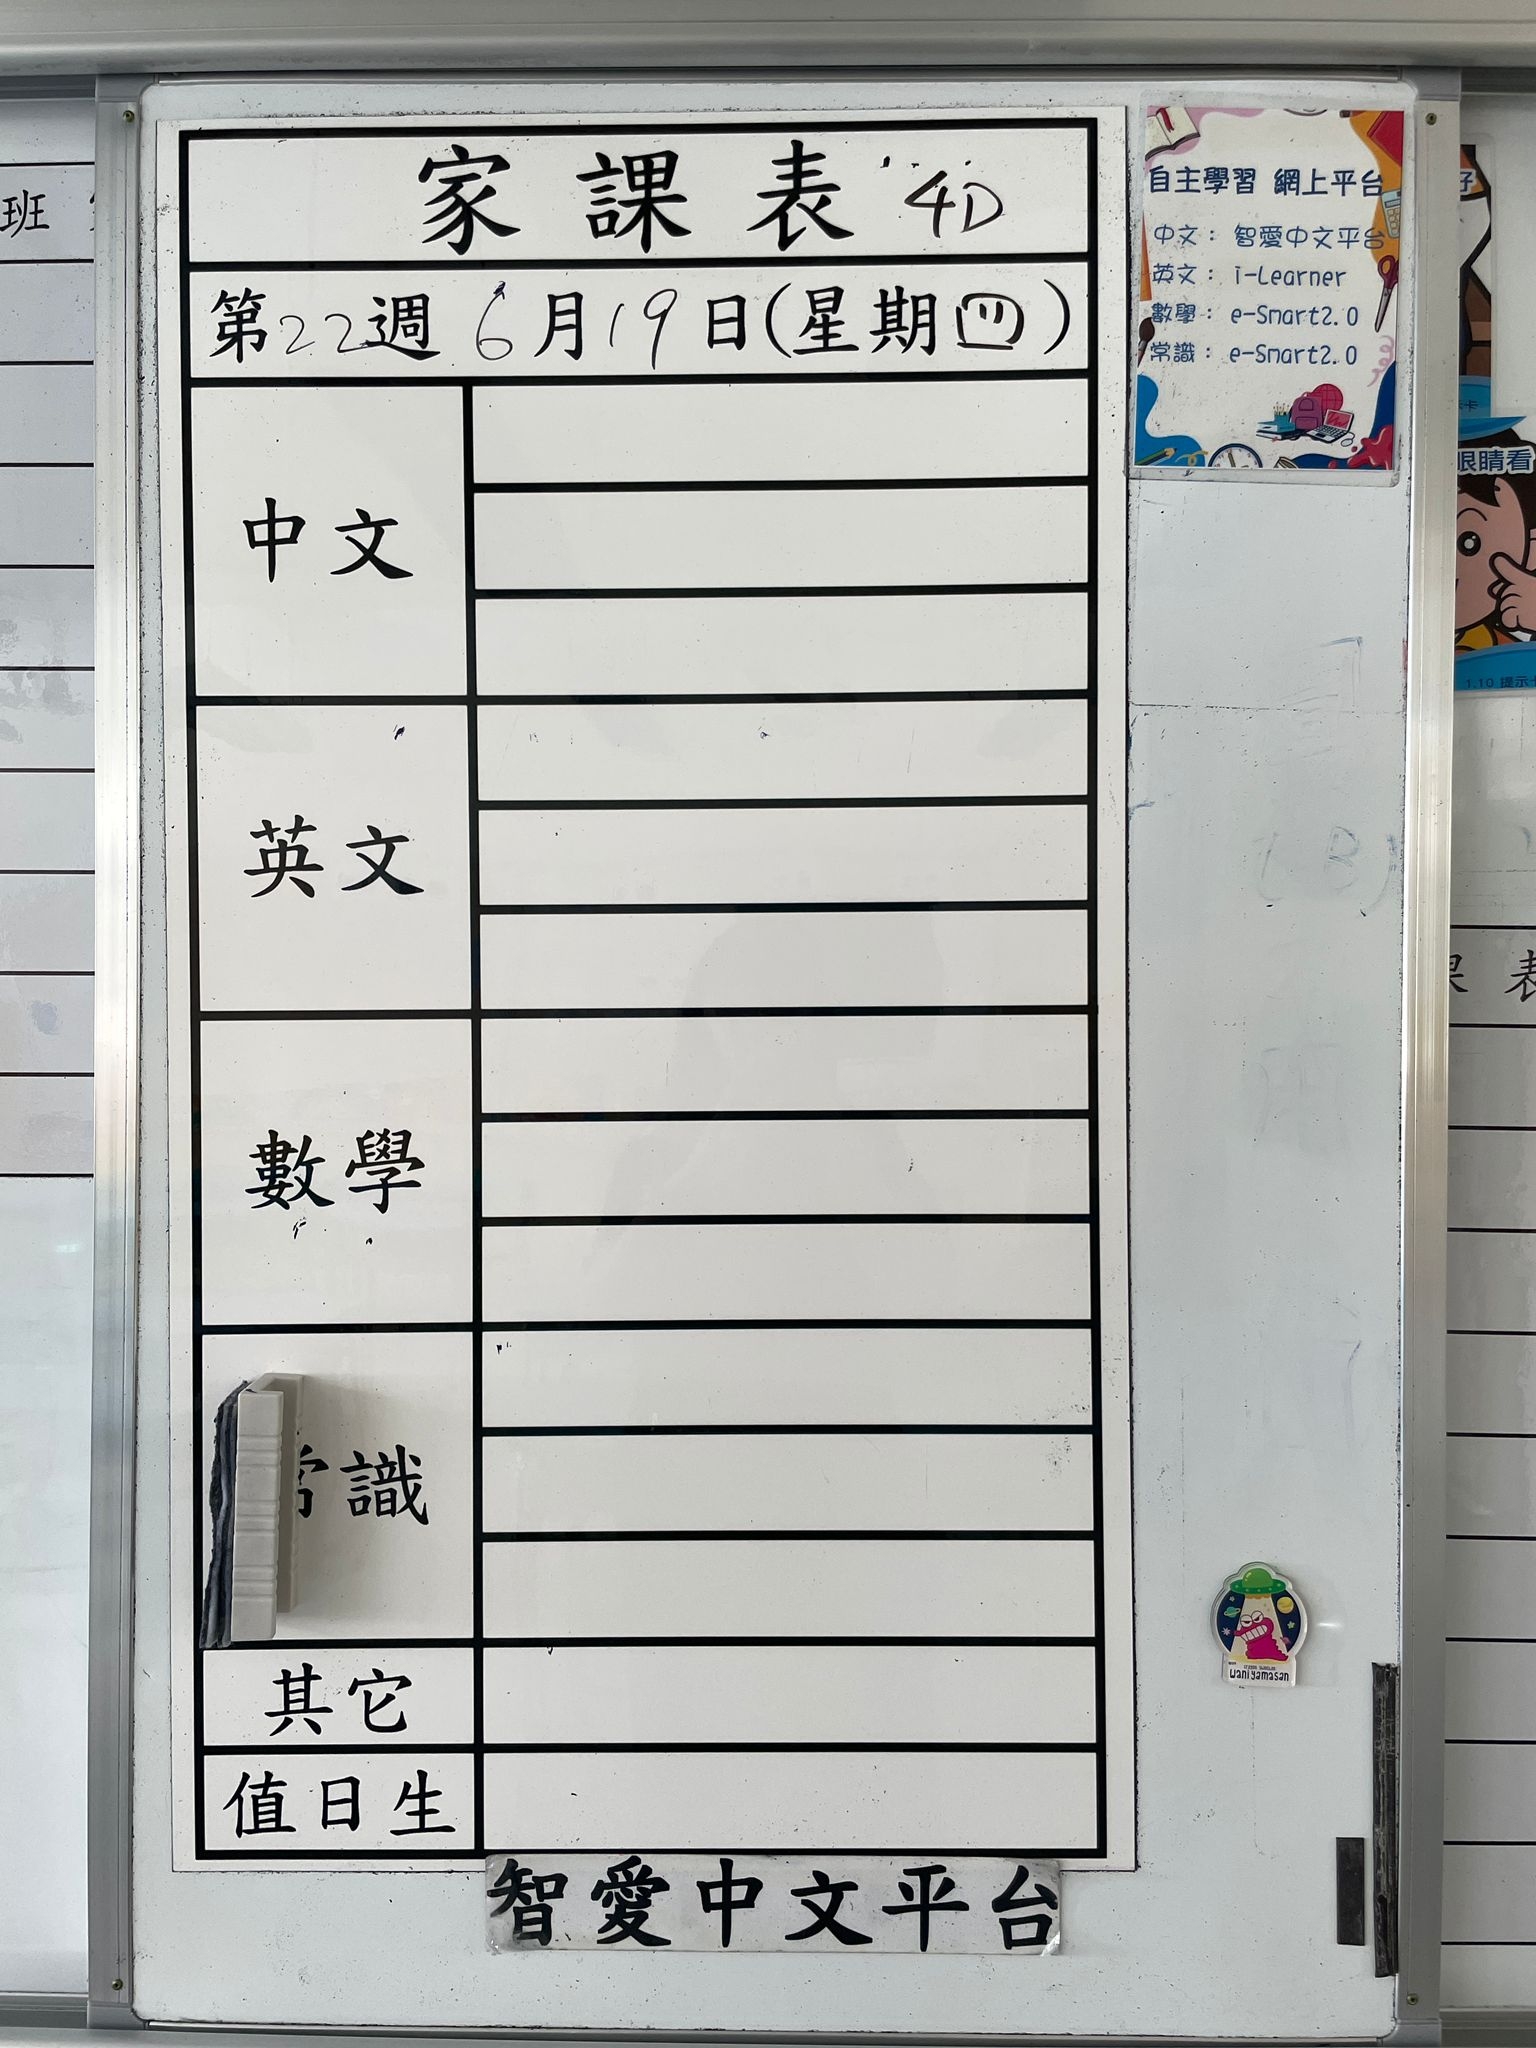 家課表 4D
第22週 6月19日(星期四)
中文
英文
數學
識
其它
值日生
智愛中文平台
自主學習 網上平台
中文: 智愛中文平台
英文: i-Learner
數學: e-Smart2.0
常識: e-Smart2.0
waniyamasan
班
好
示卡
眼睛看
1.10 提示
表